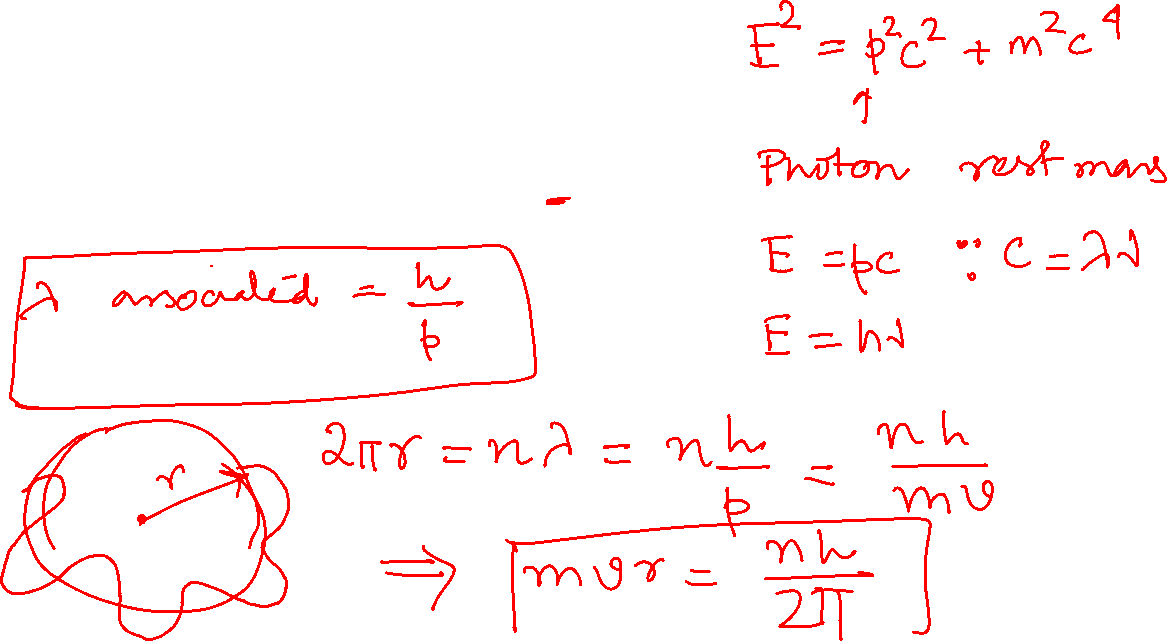 E² = p²c² + m²c⁴
↑
Photon rest mass
E = pc ∵ c = λν
E = hν
λ associated = h/p
r
2πr = nλ = nh/p = nh/mv
⇒ mvr = nh/2π